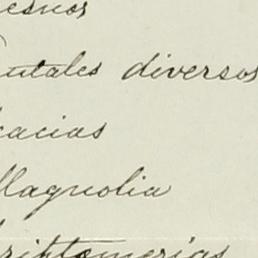 esnos
utales diversos
cacias
Magnolia
criptomerias